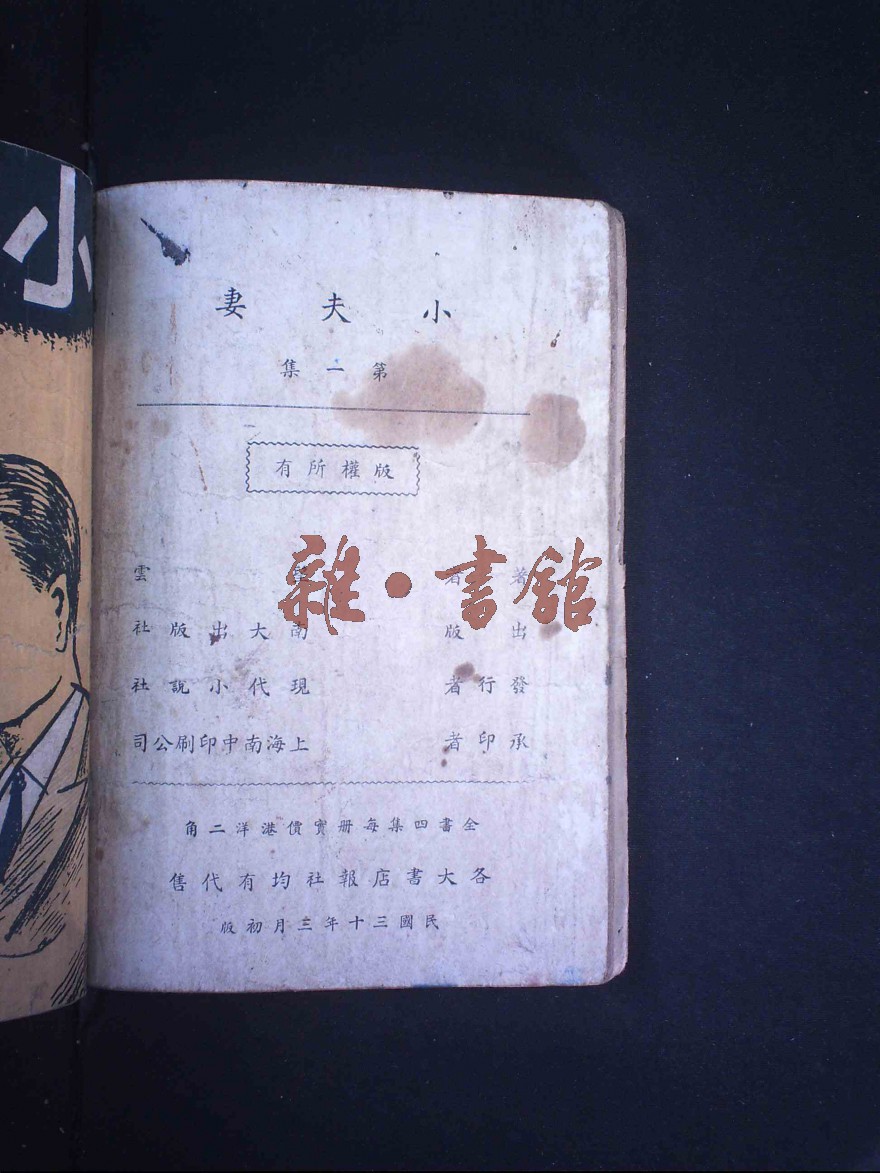 小
小夫妻
第一集
版權所有
著者 雲
出版 南大出版社
發行者 現代小說社
承印者 上海南中印刷公司
全書四集每册實價港洋二角
各大書店報社均有代售
民國三十年三月初版
雜·書館